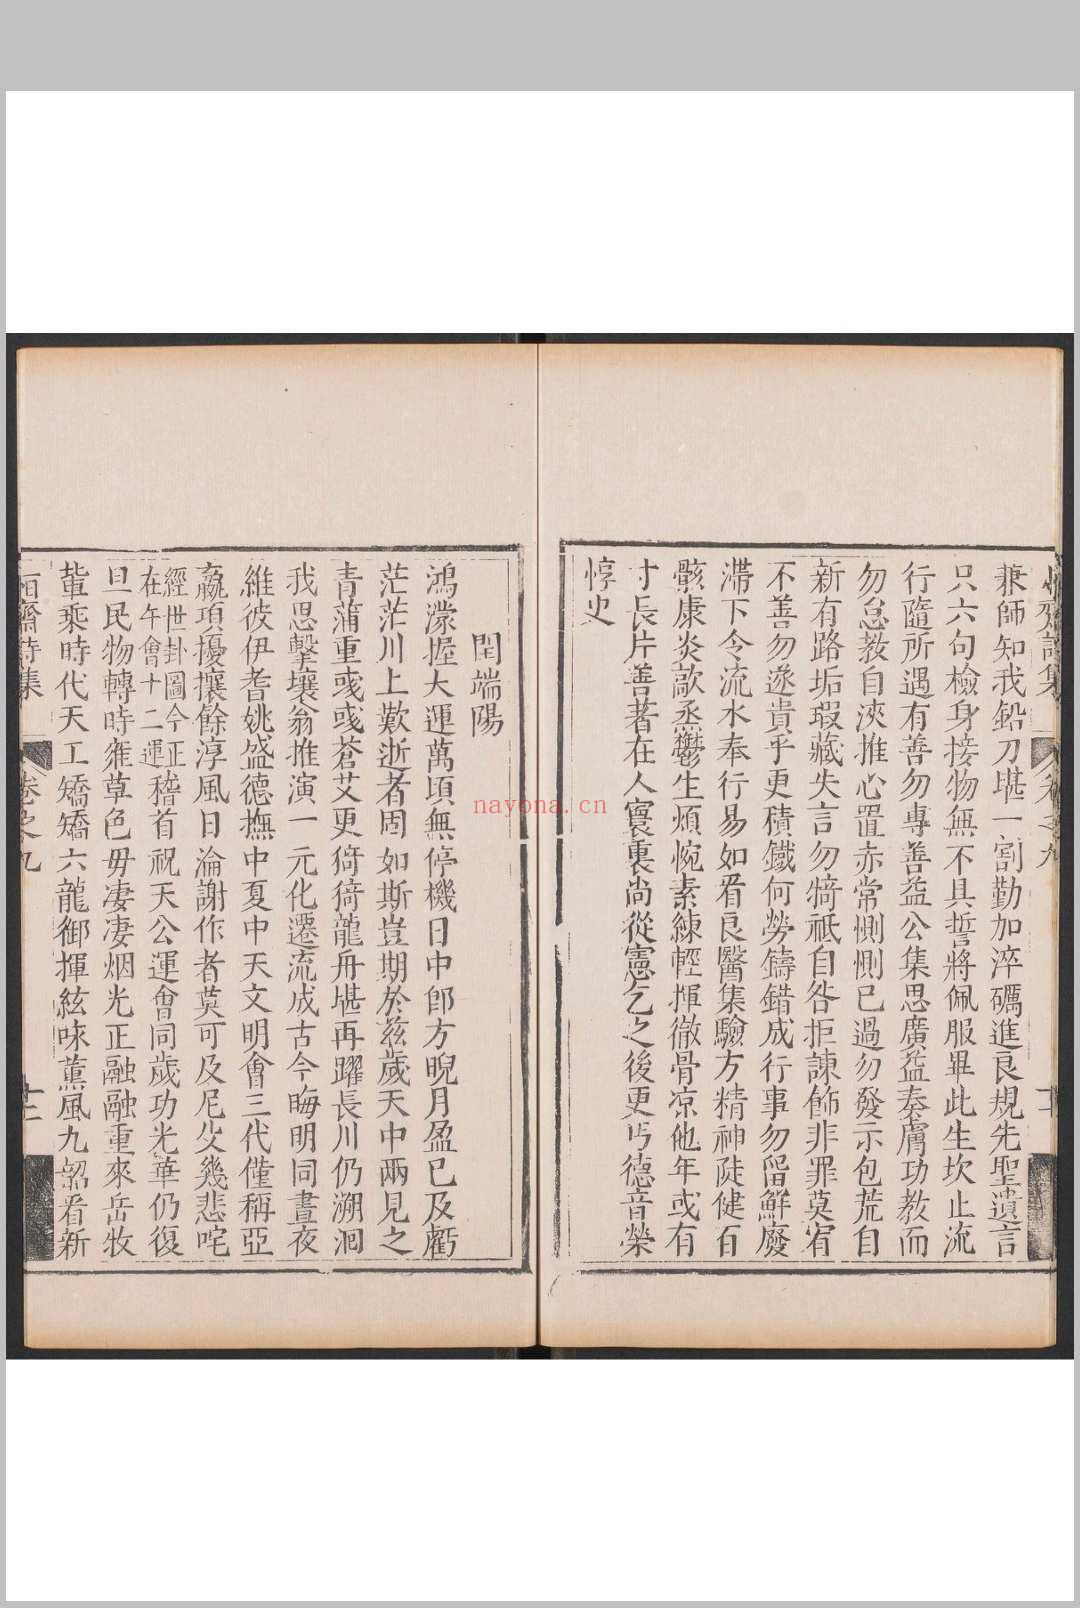 兼師知我鉛刀堪一割勤加淬礪進良規先聖遺言
只六句檢身接物無不具誓將佩服畢此生坎止流
行隨所遇有善勿專善益公集思廣益奏膚功教而
勿怠教自浹推心置赤常惻惻已過勿發示包荒自
新有路垢瑕藏失言勿犄祗自咎拒諫飾非罪莫宥
不善勿遂貴乎更積鐵何勞鑄錯成行事勿留鮮廢
滯下令流水奉行易如看良醫集驗方精神陡健百
骸康炎歊烝鬱生煩惋素練輕揮徹骨凉他年或有
寸長片善著在人寰裏尚從憲乞之後更丐德音榮
惇史
閏端陽
鴻濛握大運萬頃無停機日中卽方晲月盈已及虧
茫茫川上歎逝者固如斯豈期於兹歲天中兩見之
青蒲重彧彧蒼艾更猗猗龍舟堪再躍長川仍溯洄
我思擊壤翁推演一元化遷流成古今晦明同晝夜
維彼伊耆姚盛德撫中夏中天文明會三代僅稱亞
嬴項擾攘餘淳風日淪謝作者莫可及尼父幾悲咤
經世卦圖今正
在午會十二運
稽首祝天公運會同歲功光華仍復
旦民物轉時雍草色毋凄凄烟光正融融重來岳牧
輩乘時代天工矯矯六龍御揮絃咏薰風九韶看新
齋詩集
卷之九
十二
nayona.cn